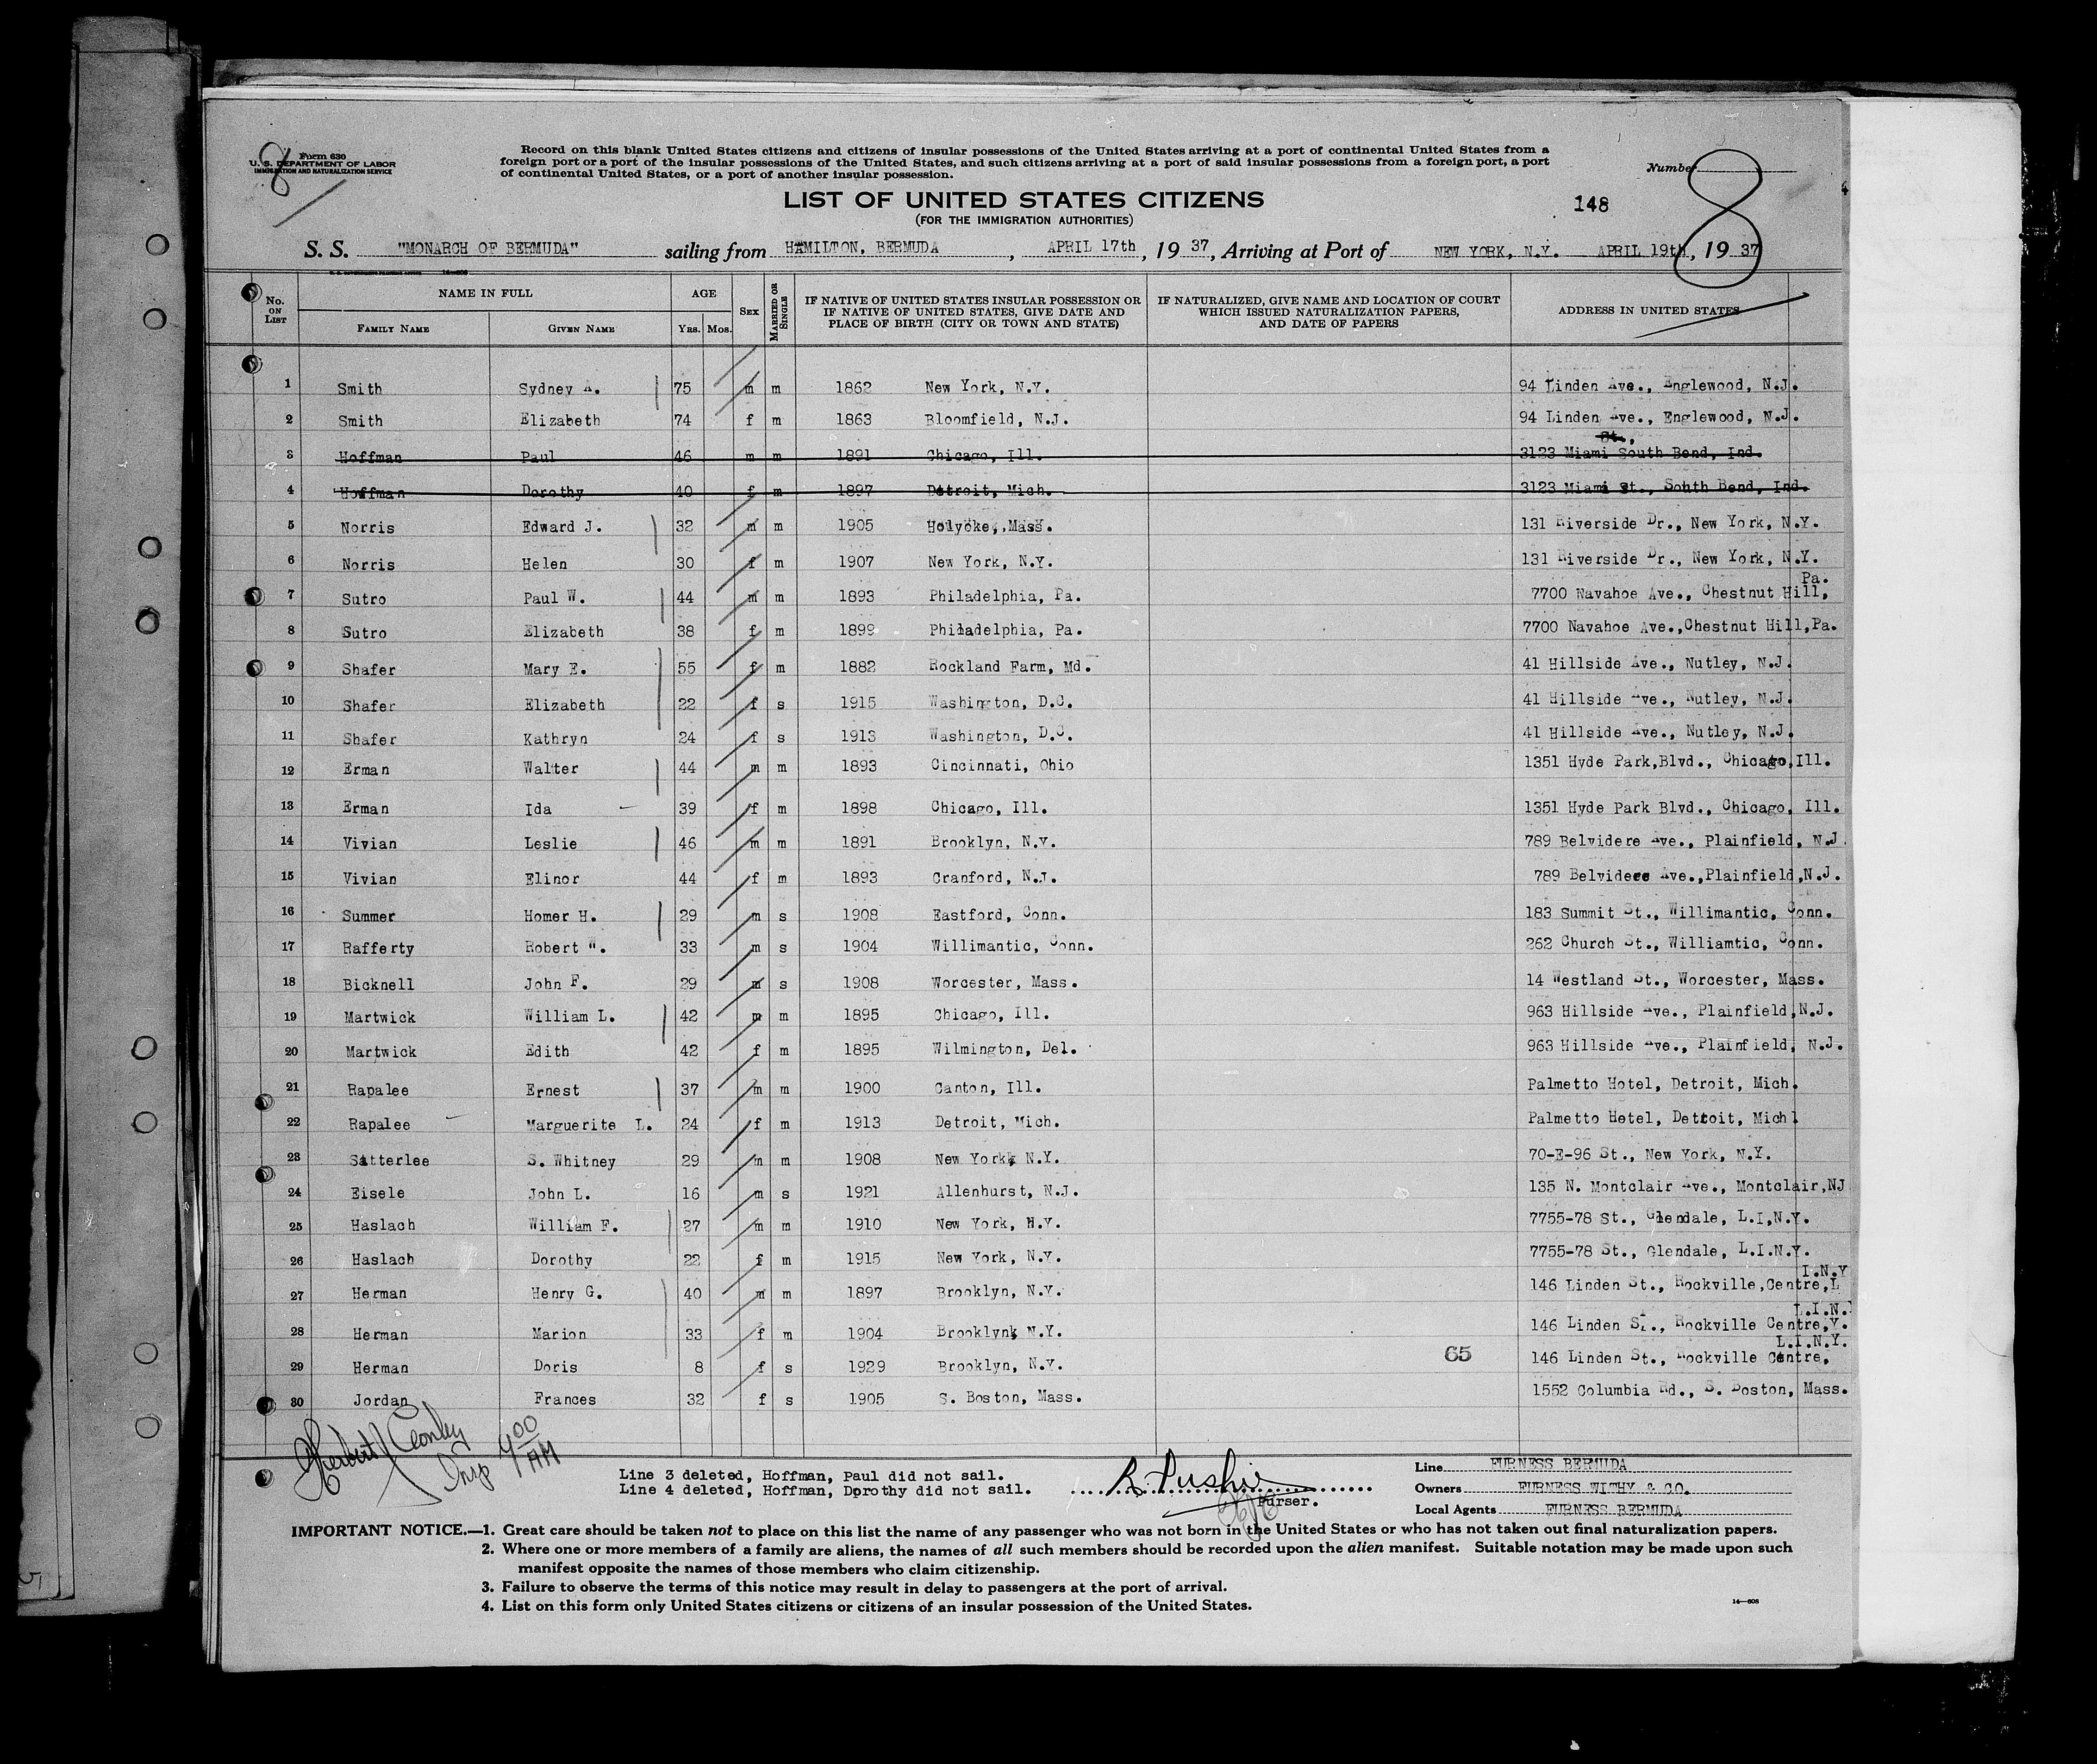 Form 630
U. S. DEPARTMENT OF LABOR
IMMIGRATION AND NATURALIZATION SERVICE
8
Record on this blank United States citizens and citizens of insular possessions of the United States arriving at a port of continental United States from a
foreign port or a port of the insular possessions of the United States, and such citizens arriving at a port of said insular possessions from a foreign port, a port
of continental United States, or a port of another insular possession.
Number 8
LIST OF UNITED STATES CITIZENS
(FOR THE IMMIGRATION AUTHORITIES)
148
S. S. "MONARCH OF BERMUDA" sailing from HAMILTON, BERMUDA, APRIL 17th, 1937, Arriving at Port of NEW YORK, N.Y. APRIL 19th, 1937
No. ON LIST
NAME IN FULL
FAMILY NAME GIVEN NAME
AGE
YRS. MOS.
SEX
MARRIED OR SINGLE
IF NATIVE OF UNITED STATES INSULAR POSSESSION OR
IF NATIVE OF UNITED STATES, GIVE DATE AND
PLACE OF BIRTH (CITY OR TOWN AND STATE)
IF NATURALIZED, GIVE NAME AND LOCATION OF COURT
WHICH ISSUED NATURALIZATION PAPERS,
AND DATE OF PAPERS
ADDRESS IN UNITED STATES
1 Smith Sydney A. 75 m m 1862 New York, N.Y. 94 Linden Ave., Englewood, N.J.
2 Smith Elizabeth 74 f m 1863 Bloomfield, N.J. 94 Linden Ave., Englewood, N.J.
St.,
3 Hoffman Paul 46 m m 1891 Chicago, Ill. 3123 Miami South Bend, Ind.
4 Hoffman Dorothy 40 f m 1897 Detroit, Mich. 3123 Miami St., South Bend, Ind.
5 Norris Edward J. 32 m m 1905 Holyoke, Mass. 131 Riverside Dr., New York, N.Y.
6 Norris Helen 30 f m 1907 New York, N.Y. 131 Riverside Dr., New York, N.Y.
Pa.
7 Sutro Paul W. 44 m m 1893 Philadelphia, Pa. 7700 Navahoe Ave., Chestnut Hill,
8 Sutro Elizabeth 38 f m 1899 Philadelphia, Pa. 7700 Navahoe Ave.,Chestnut Hill,Pa.
9 Shafer Mary E. 55 f m 1882 Rockland Farm, Md. 41 Hillside Ave., Nutley, N.J.
10 Shafer Elizabeth 22 f s 1915 Washington, D.C. 41 Hillside Ave., Nutley, N.J.
11 Shafer Kathryn 24 f s 1913 Washington, D.C. 41 Hillside Ave., Nutley, N.J.
12 Erman Walter 44 m m 1893 Cincinnati, Ohio 1351 Hyde Park,Blvd., Chicago,Ill.
13 Erman Ida 39 f m 1898 Chicago, Ill. 1351 Hyde Park Blvd., Chicago, Ill.
14 Vivian Leslie 46 m m 1891 Brooklyn, N.Y. 789 Belvidere Ave., Plainfield, N.J
15 Vivian Elinor 44 f m 1893 Cranford, N.J. 789 Belvidere Ave.,Plainfield,N.J.
16 Summer Homer H. 29 m s 1908 Eastford, Conn. 183 Summit St., Willimantic, Conn.
17 Rafferty Robert W. 33 m s 1904 Willimantic, Conn. 262 Church St., Williamtic, Conn.
18 Bicknell John F. 29 m s 1908 Worcester, Mass. 14 Westland St., Worcester, Mass.
19 Martwick William L. 42 m m 1895 Chicago, Ill. 963 Hillside Ave., Plainfield,N.J.
20 Martwick Edith 42 f m 1895 Wilmington, Del. 963 Hillside Ave., Plainfield, N.J.
21 Rapalee Ernest 37 m m 1900 Canton, Ill. Palmetto Hotel, Detroit, Mich.
22 Rapalee Marguerite L. 24 f m 1913 Detroit, Mich. Palmetto Hotel, Detroit, Mich.
23 Satterlee S. Whitney 29 m m 1908 New York, N.Y. 70-E-96 St., New York, N.Y.
24 Eisele John L. 16 m s 1921 Allenhurst, N.J. 135 N. Montclair Ave., Montclair,NJ
25 Haslach William F. 27 m m 1910 New York, N.Y. 7755-78 St., Glendale, L.I,N.Y.
26 Haslach Dorothy 22 f m 1915 New York, N.Y. 7755-78 St., Glendale, L.I.N.Y.
I.N.Y
27 Herman Henry G. 40 m m 1897 Brooklyn, N.Y. 146 Linden St., Rockville,Centre,L
L.I.N.
28 Herman Marion 33 f m 1904 Brooklyn, N.Y. 146 Linden St., Rockville Centre,Y.
L.I.N.Y.
29 Herman Doris 8 f s 1929 Brooklyn, N.Y. 65 146 Linden St., Rockville Centre,
30 Jordan Frances 32 f s 1905 S. Boston, Mass. 1552 Columbia Rd., S. Boston, Mass.
Insp 9 00 AM
Line 3 deleted, Hoffman, Paul did not sail.
Line 4 deleted, Hoffman, Dorothy did not sail.
Purser.
Line FURNESS BERMUDA
Owners FURNESS WITHY & CO.
Local Agents FURNESS BERMUDA
IMPORTANT NOTICE.—1. Great care should be taken not to place on this list the name of any passenger who was not born in the United States or who has not taken out final naturalization papers.
2. Where one or more members of a family are aliens, the names of all such members should be recorded upon the alien manifest. Suitable notation may be made upon such
manifest opposite the names of those members who claim citizenship.
3. Failure to observe the terms of this notice may result in delay to passengers at the port of arrival.
4. List on this form only United States citizens or citizens of an insular possession of the United States.
14—608